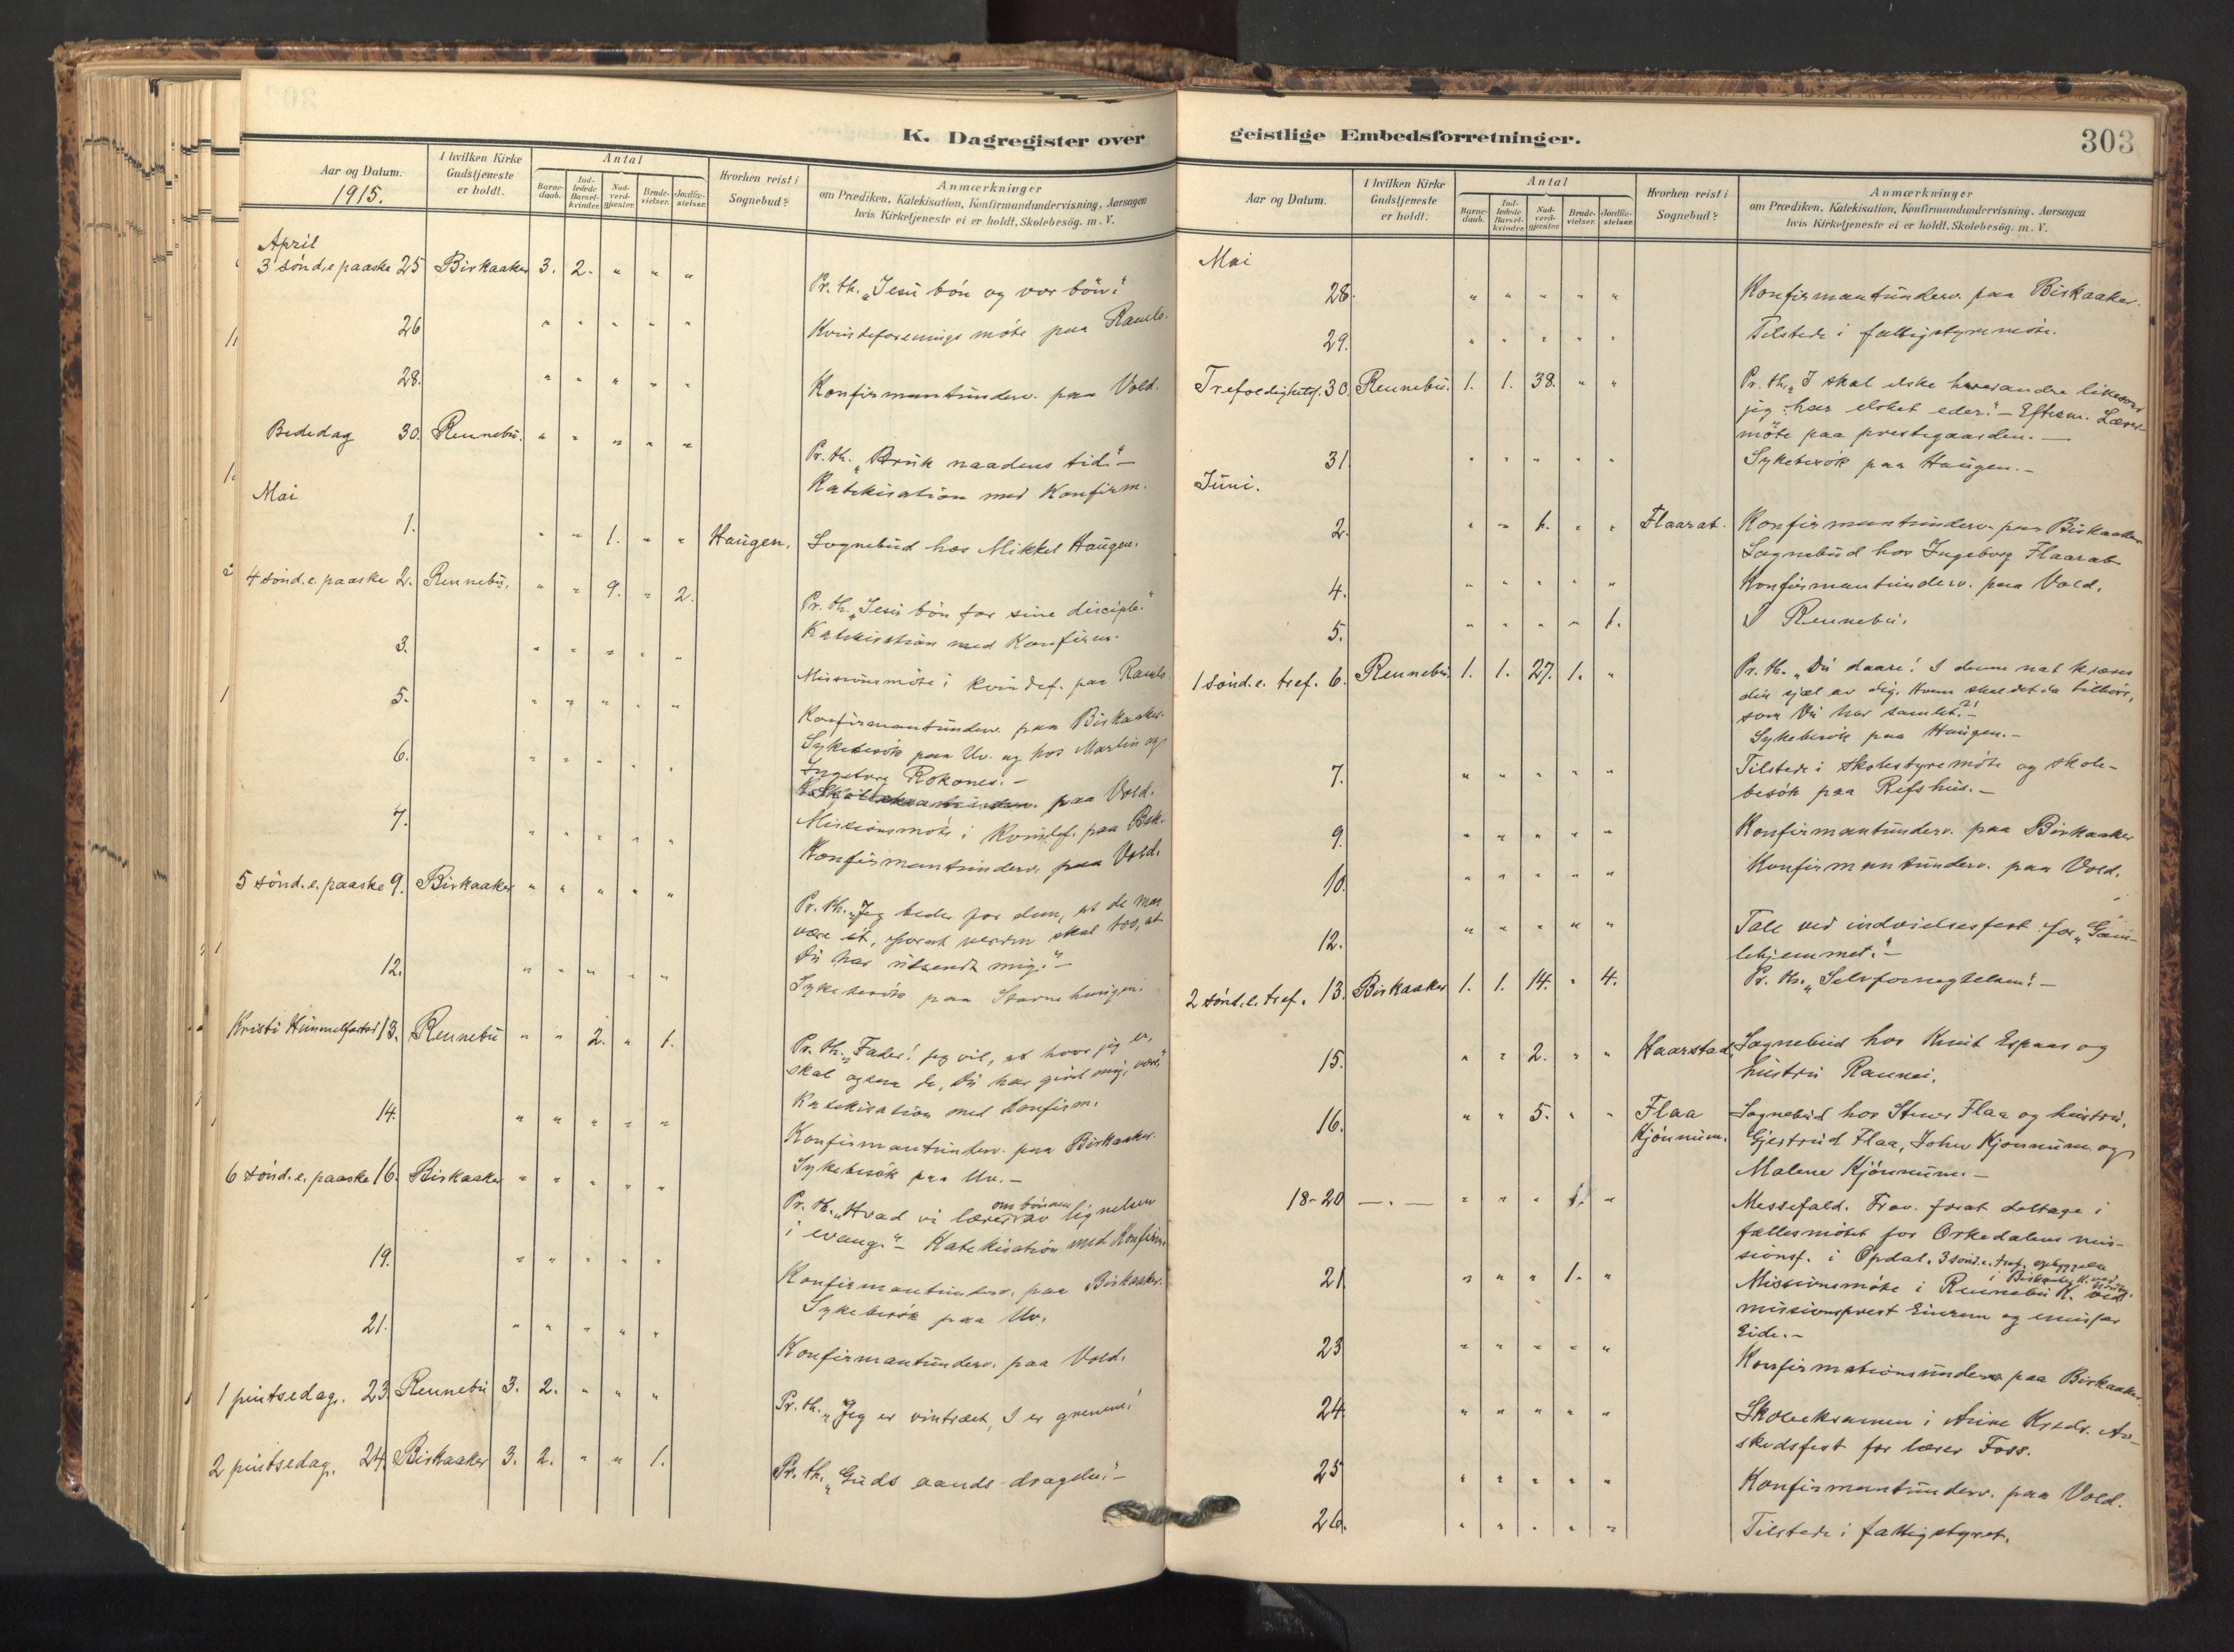 K. Dagregister over
Aar og Datum.
1915.
I hvilken Kirke
Gudstjeneste
er holdt.
Antal
Barne-
daab.
Ind-
ledede
Barsel-
kvinder.
Nad-
verd-
gjæster.
Brude-
vielser.
Jordfæ-
stelser.
Hvorhen reist i
Sognebud?
Anmærkninger
om Prædiken, Katekisation, Konfirmandundervisning, Aarsagen
hvis Kirketjeneste ei er holdt, Skolebesög. m. V.
April
3 sönd. e paaske 25 Birkaaker 3. 2. " " " Pr. th. "Jesu bön og vor bön."
26 " " " " " Kvindeforenings möte paa Ramlo.
28. " " " " " Konfirmantunderv. paa Vold.
Bededag 30. Rennebu. " " " " " Pr. th. "Bruk naadens tid." –
Katekisation med Konfirm.
Mai
1. " " 1. " " Haugen. Sognebud hos Mikkel Haugen.
4 sönd. e. paaske 2. Rennebu. " " 9. " 2. Pr. th. "Jesu bön for sine disciple."
Katekisation med Konfirm.
3. " " " " " Missionsmöte i kvindef. paa Ramlo.
5. " " " " " Konfirmantunderv. paa Birkaaker.
Sykebesök paa Uv. og hos Martin og
6. " " " " " Ingeborg Rokones. –
paa Vold.
7. " " " " " Missionsmöte i Kvindef. paa Bsk.
Konfirmantunderv. paa Vold.
5 sönd. e. paaske 9. Birkaaker " " " " " Pr. th. "Jeg beder for dem, at de maa
være ét, forat verden skal tro, at
Du har utsendt mig." –
12. " " " " " Sykebesök paa Stavnehaugen.
Kristi Himmelfartsd 13. Rennebu " " 2. " 1. Pr. th. "Fader! jeg vil, at hvor jeg er,
skal ogsaa de, Du har givet mig, være"
Katekisation med Konfirm.
14. " " " " " Konfirmantunderv. paa Birkaaker.
Sykebesök paa Uv. –
6 sönd. e. paaske 16. Birkaaker " " " " " Pr. th. "Hvad vi lærer om bönnen av lignelsen
i evang." – Katekisation med Konfirm.
19. " " " " " Konfirmantunderv. paa Birkaaker.
Sykebesök paa Uv.
21. " " " " " Konfirmantunderv. paa Vold.
1 pintsedag. 23 Rennebu 3. 2. " " " Pr. th. "Jeg er vintræet, I er grenene!
2 pintsedag. 24. Birkaaker 3. 2. " " 1. Pr. th. "Guds aands dragelse." –
geistlige Embedsforretninger.
303
Aar og Datum.
I hvilken Kirke
Gudstjeneste
er holdt.
Antal
Barne-
daab.
Ind-
ledede
Barsel-
kvinder.
Nad-
verd-
gjæster.
Brude-
vielser.
Jordfæ-
stelser.
Hvorhen reist i
Sognebud?
Anmærkninger
om Prædiken, Katekisation, Konfirmandundervisning, Aarsagen
hvis Kirketjeneste ei er holdt, Skolebesög. m. V.
Mai
28. " " " " " Konfirmantunderv. paa Birkaaker.
29. " " " " " Tilstede i fattigstyremöte.
Trefoldighetsf. 30. Rennebu. 1. 1. 38. " " Pr. th. "I skal elske hverandre likesom
jeg har elsket eder." – Efterm. Lærer-
möte paa prestegaarden. –
31. " " " " " Sykebesök paa Haugen. –
Juni.
2. " " 1. " " Flaarat. Konfirmantunderv. paa Birkaaker
Sognebud hos Ingeborg Flaarat
4. " " " " " Konfirmantunderv. paa Vold.
5. " " " " 1. I Rennebu.
1 sönd. e. tref. 6. Rennebu. 1. 1. 27. 1. " Pr. th. "Du daare! I denne nat kræves
din sjæl av dig. Hvem skal det da tilhöre,
som Du har samlet?" –
Sykebesök paa Haugen. –
7. " " " " " Tilstede i skolestyremöte og skole-
besök paa Refshus. –
9. " " " " " Konfirmantunderv. paa Birkaaker
10. " " " " " Konfirmantunderv. paa Vold.
12. " " " " " Tale ved indvielsesfest for "Gam-
lehjemmet." –
2 sönd. e. tref. 13. Birkaaker 1. 1. 14. " 4. Pr. th. "Selvfornegtelsen! –
15. " " 2. " " Haarstad Sognebud hos Knut Espaas og
hustru Rannei.
16. " " 5. " " Flaa Sognebud hos Stener Flaa og hustru,
Kjönnum. Gjertrud Flaa, John Kjönnum og
Malene Kjönnum. –
18-20 – " – " " " 1. " Messefald. Frav. forat deltage i
fællesmötet for Orkedalens mis-
sionsf. i Opdal. 3 sönd. e. tref. opbyggelse
i Birkaaker K. ved
21. " " " 1. " Missionsmöte i Rennebu K. ved
missionsprest Einrem og emissær
Eide. –
23 " " " " " Konfirmationsunderv. paa Birkaaker.
24. " " " " " Skoleeksamen i Aune Kreds. Av-
skedsfest for lærer Foss.
25 " " " " " Konfirmantunderv. paa Vold.
26. " " " " " Tilstede i fattigstyret.